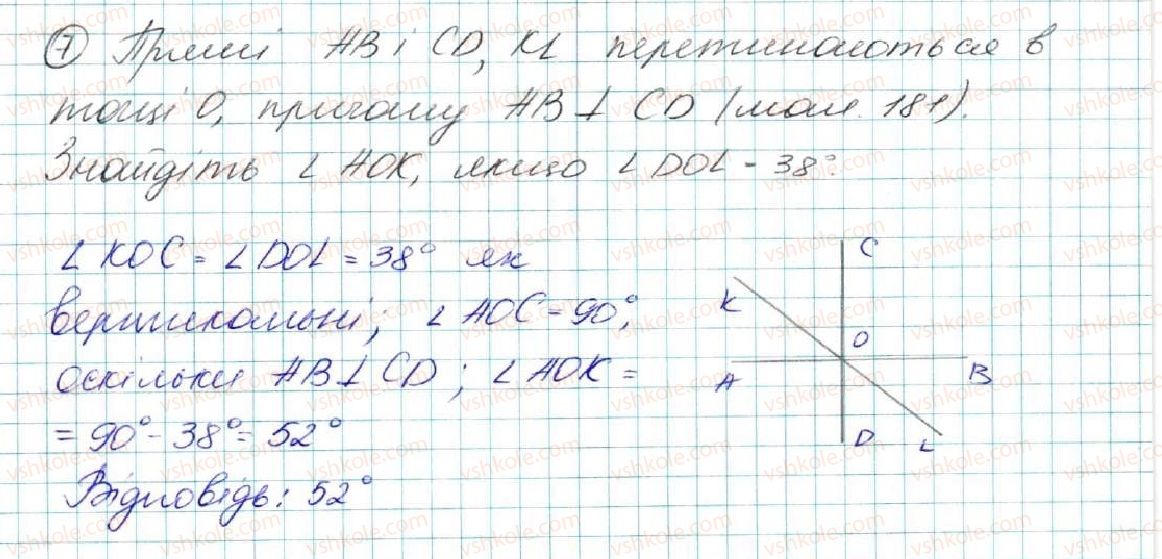 7 Прямі AB і CD, KL перетинаються в
точці O, причому AB ⊥ CD (мал. 181).
Знайдіть ∠ AOK, якщо ∠ DOL = 38°.
∠ KOC = ∠ DOL = 38° як
вертикальні; ∠ AOC = 90°,
оскільки AB ⊥ CD; ∠ AOK =
= 90° - 38° = 52°
Відповідь: 52°
C
K
O
A
B
D
L